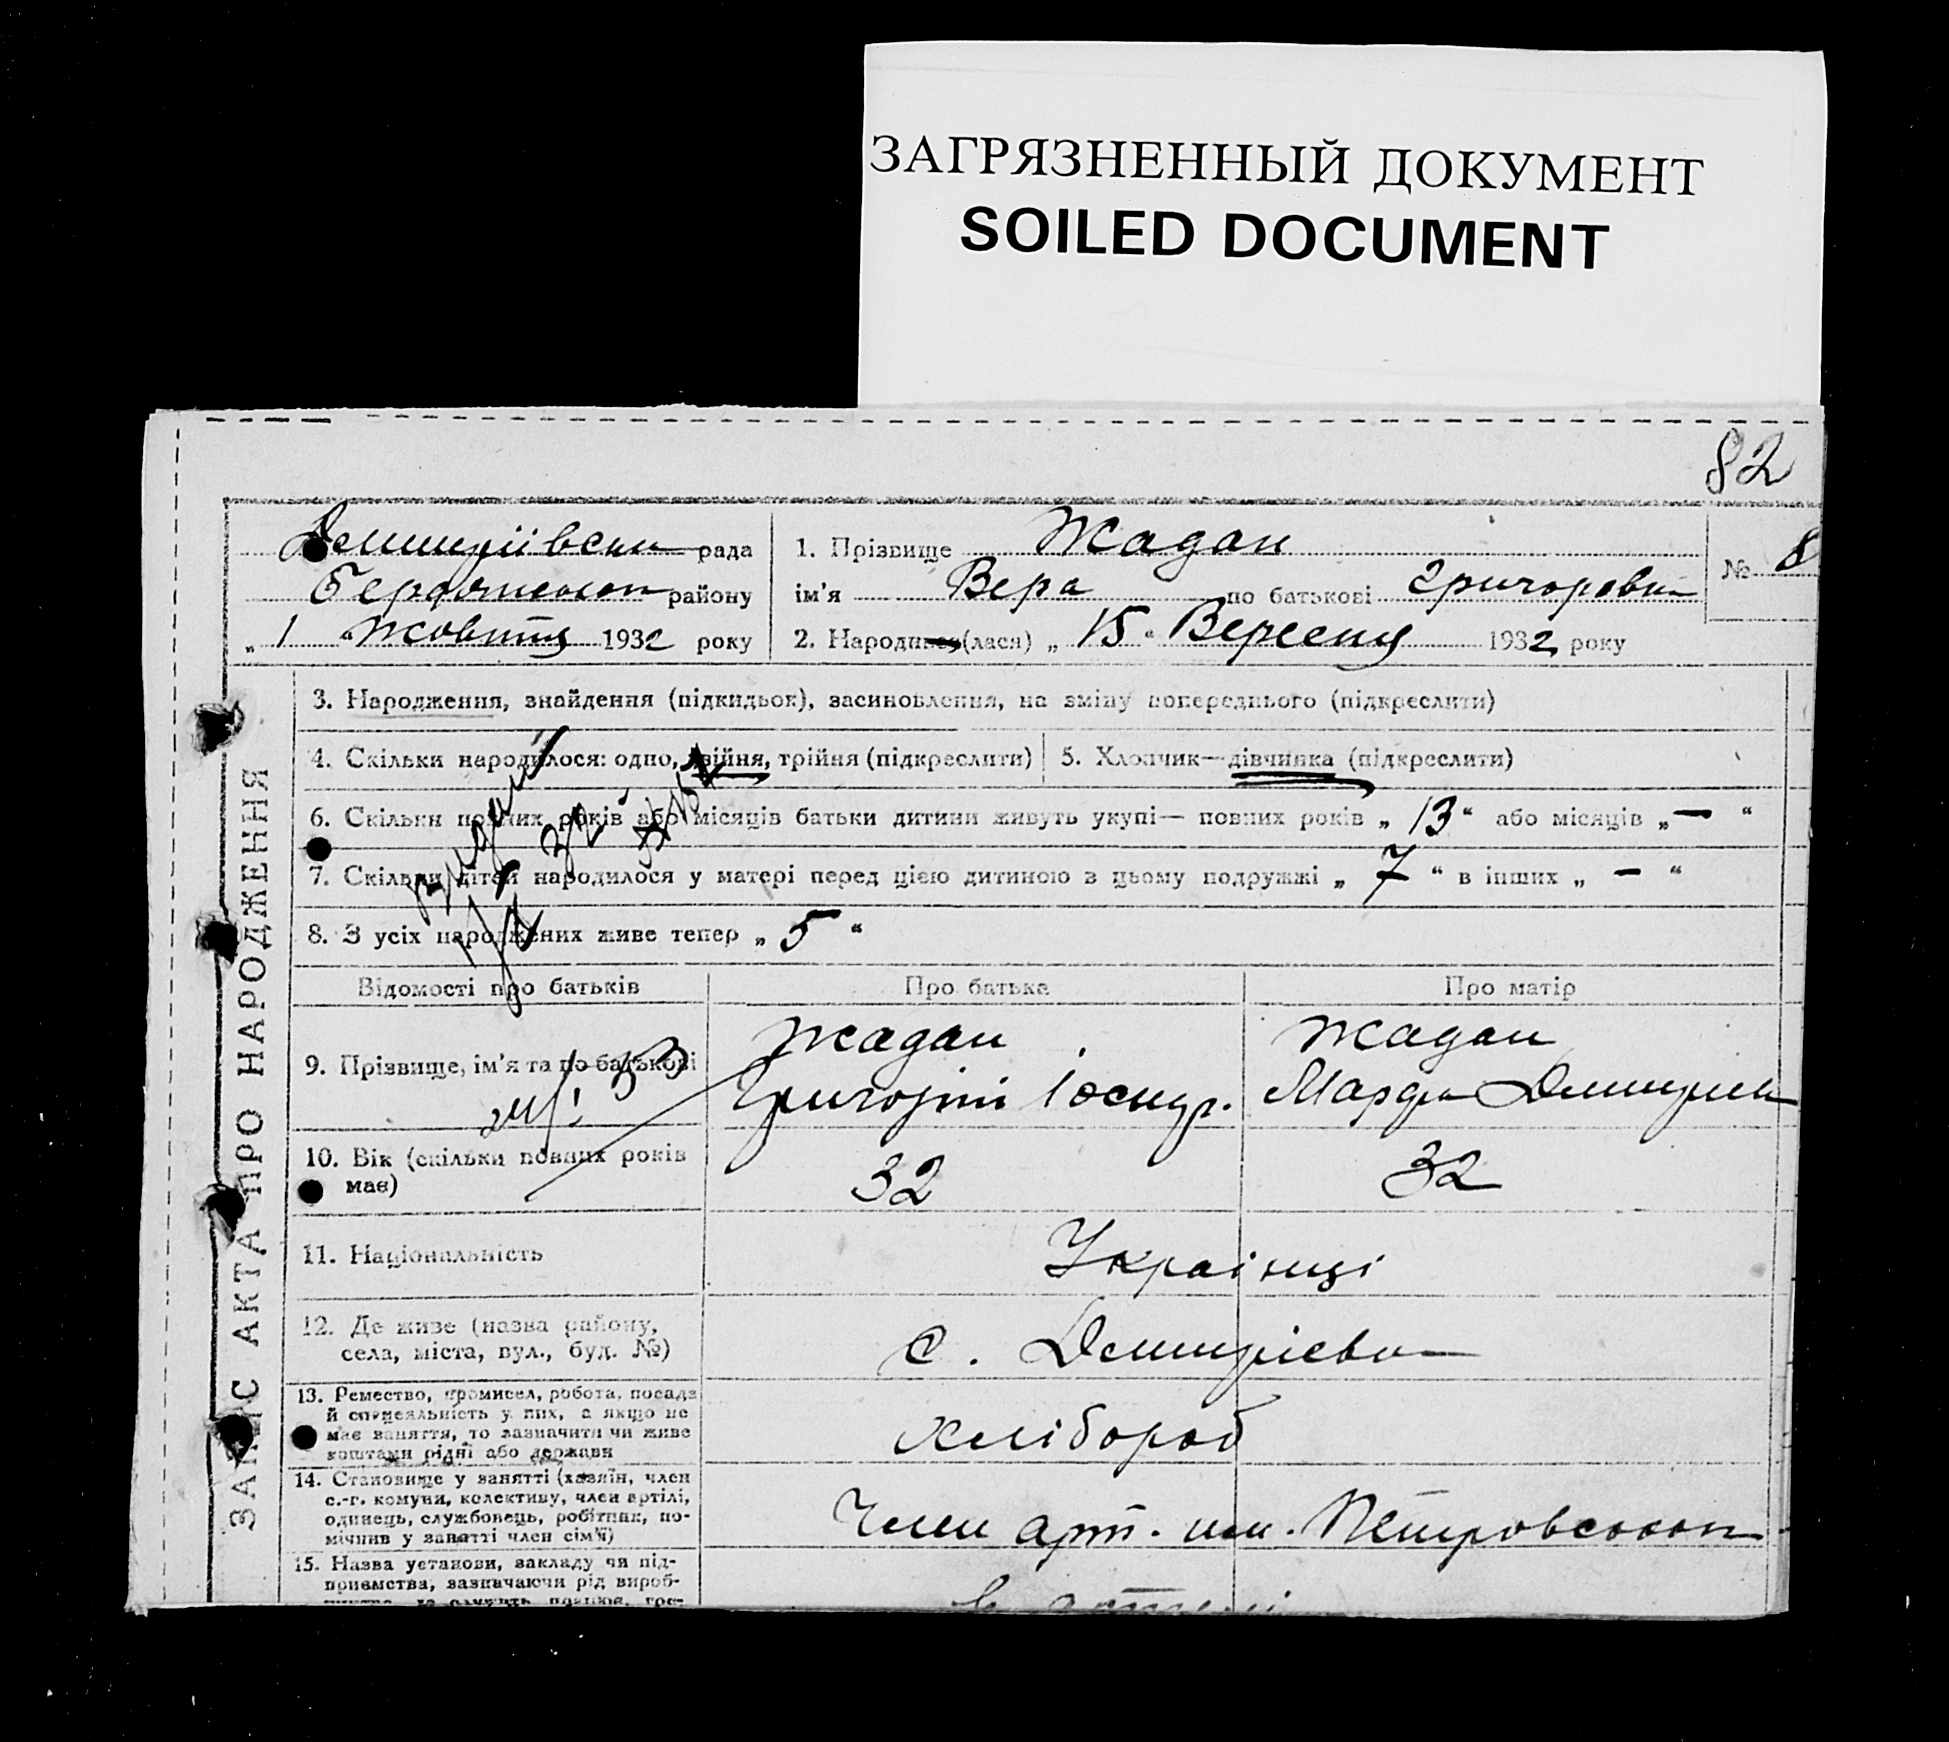 ЗАГРЯЗНЕННЫЙ ДОКУМЕНТ
SOILED DOCUMENT
82
Дмитріївська рада
Бердянського району
„ 1 “ Жовтня 1932 року
1. Прізвище Жадан
ім'я Вера по батькові Григоровна
№ 8
2. Народився (лася) „ 15 “ Вересня 1932 року
ЗАПИС АКТА ПРО НАРОДЖЕННЯ
3. Народження, знайдення (підкидьок), засиновлення, на зміну попереднього (підкреслити)
4. Скільки народилося: одно, двійня, трійня (підкреслити)
5. Хлопчик—дівчинка (підкреслити)
6. Скільки повних років або місяців батьки дитини живуть укупі— повних років „ 13 “ або місяців „ — “
7. Скільки дітей народилося у матері перед цією дитиною в цьому подружжі „ 7 “ в інших „ — “
8. З усіх народжених живе тепер „ 5 “
Відомості про батьків
Про батька
Про матір
9. Прізвище, ім'я та по батькові
Жадан
Григорій Іосип.
Жадан
Марфа Дмитриевна
10. Вік (скільки повних років
має)
32
32
11. Національність
Українці
12. Де живе (назва району,
села, міста, вул., буд. №)
с. Дмитрієвка
13. Ремество, промисел, робота, посада
й спеціяльність у них, а якщо не
має заняття, то зазначити чи живе
коштами рідні або держави
хлібороб
14. Становище у занятті (хазяїн, член
с.-г. комуни, колективу, член артілі,
одинець, службовець, робітник, по-
мічник у занятті член сім'ї)
Член арт. им. Петровського
15. Назва установи, закладу чи під-
приємства, зазначаючи рід вироб-
в артелі